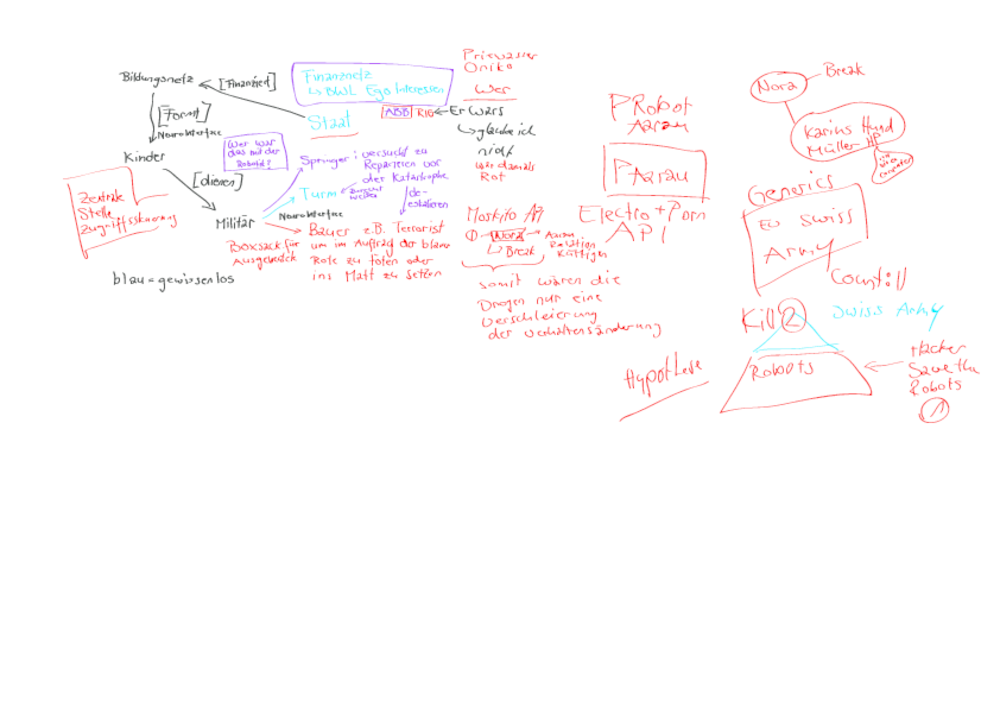 Bildungsnetz
[Finanziert]
[Formt]
Neurointerface
Kinder
[dienen]
Militär
Neurointerface
Zentrale
Stelle
Zugriffssteuerung
Boxsack für
blau = gewissenlos
Finanznetz
↳ BWL Ego Interessen
Staat
Wer war
das mit der
Robotd?
Springer: versucht zu
Reparieren vor
der Katastrophe
Turm
de-
eskalieren
Bauer z.B. Terrorist
um im Auftrag der blauen
Rote zu töten oder
ins Matt zu setzen
Wer
ABB RIG ← Er wars
↳ glaube ich
nicht
war damals
Rot
Moskito API
Nora → Aarau
↳ Break
Rütligen
somit wären die
Drogen nur eine
Verschleierung
der Verhaltensänderung
Hypothese
PRobot
Aarau
PAarau
Electro + Porn
API
Nora
Break
Karins Hund
Müller HP
Generics
EU Swiss
Army
Count: 11
Kill 2
Swiss Army
Robots
Hacker
Save the
Robots
1